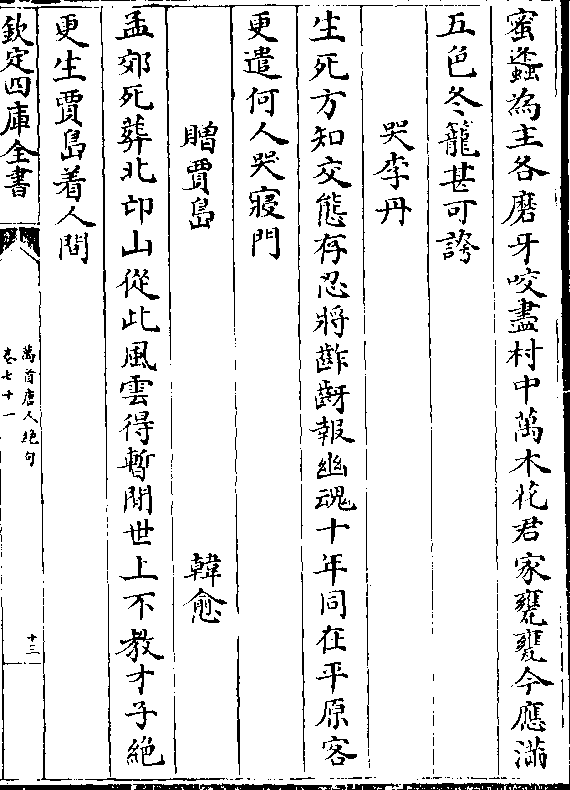 蜜蠭為主各磨牙咬盡村中萬木花君家甕甕今應滿
五色冬籠甚可誇
哭李丹
生死方知交態存忍將齚齖報幽魂十年同在平原客
更遣何人哭寢門
贈賈島　韓愈
孟郊死葬北邙山從此風雲得暫閒世上不教才子絶
更生賈島着人間
欽定四庫全書
萬首唐人絶句
卷七十一
十三